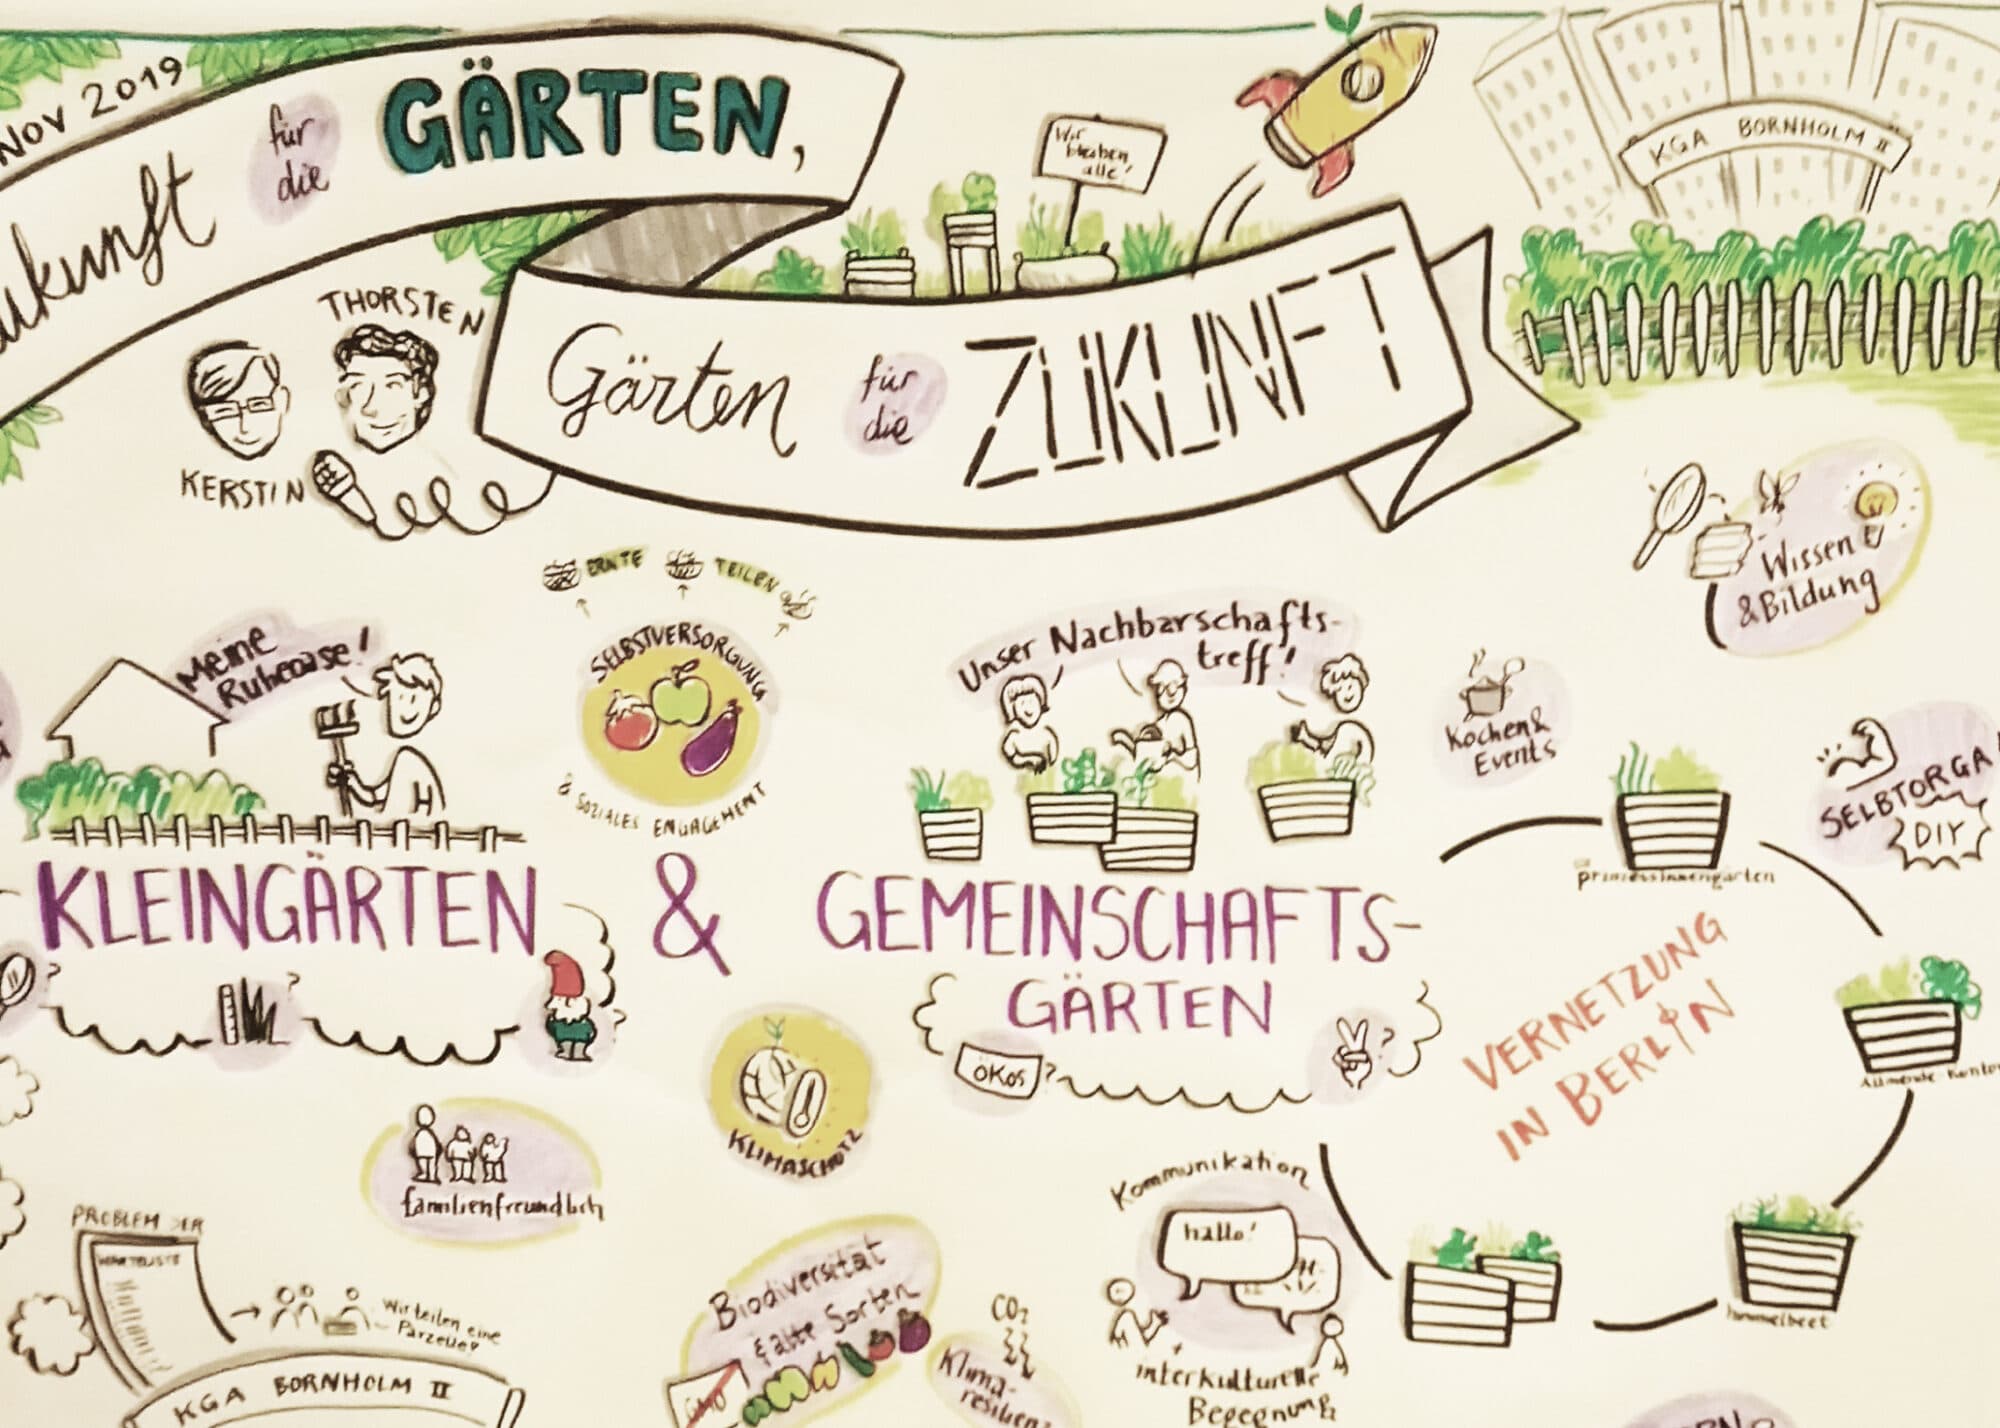 Nov 2019
für
die
GÄRTEN,
Wir
bleiben
alle!
KGA BORNHOLM II
THORSTEN
KERSTIN
Gärten
für
die
ZUKUNFT
ERNTE
TEILEN
SELBSTVERSORGUNG
& SOZIALES ENGAGEMENT
Meine
Ruheoase!
Unser Nachbarschafts-
treff!
Wissen
& Bildung
Kochen &
Events
SELBTORGA
DIY
prinzessinnengärten
KLEINGÄRTEN
&
GEMEINSCHAFTS-
GÄRTEN
?
?
?
ÖKOS
?
?
VERNETZUNG
IN BERLIN
KLIMASCHUTZ
familienfreundlich
Kommunikation
hallo!
interkulturelle
Begegnung
himmelbeet
PROBLEM DER
WARTELISTE
Wir teilen eine
Parzelle!
KGA BORNHOLM II
Biodiversität
& alte Sorten
CO2
Klima-